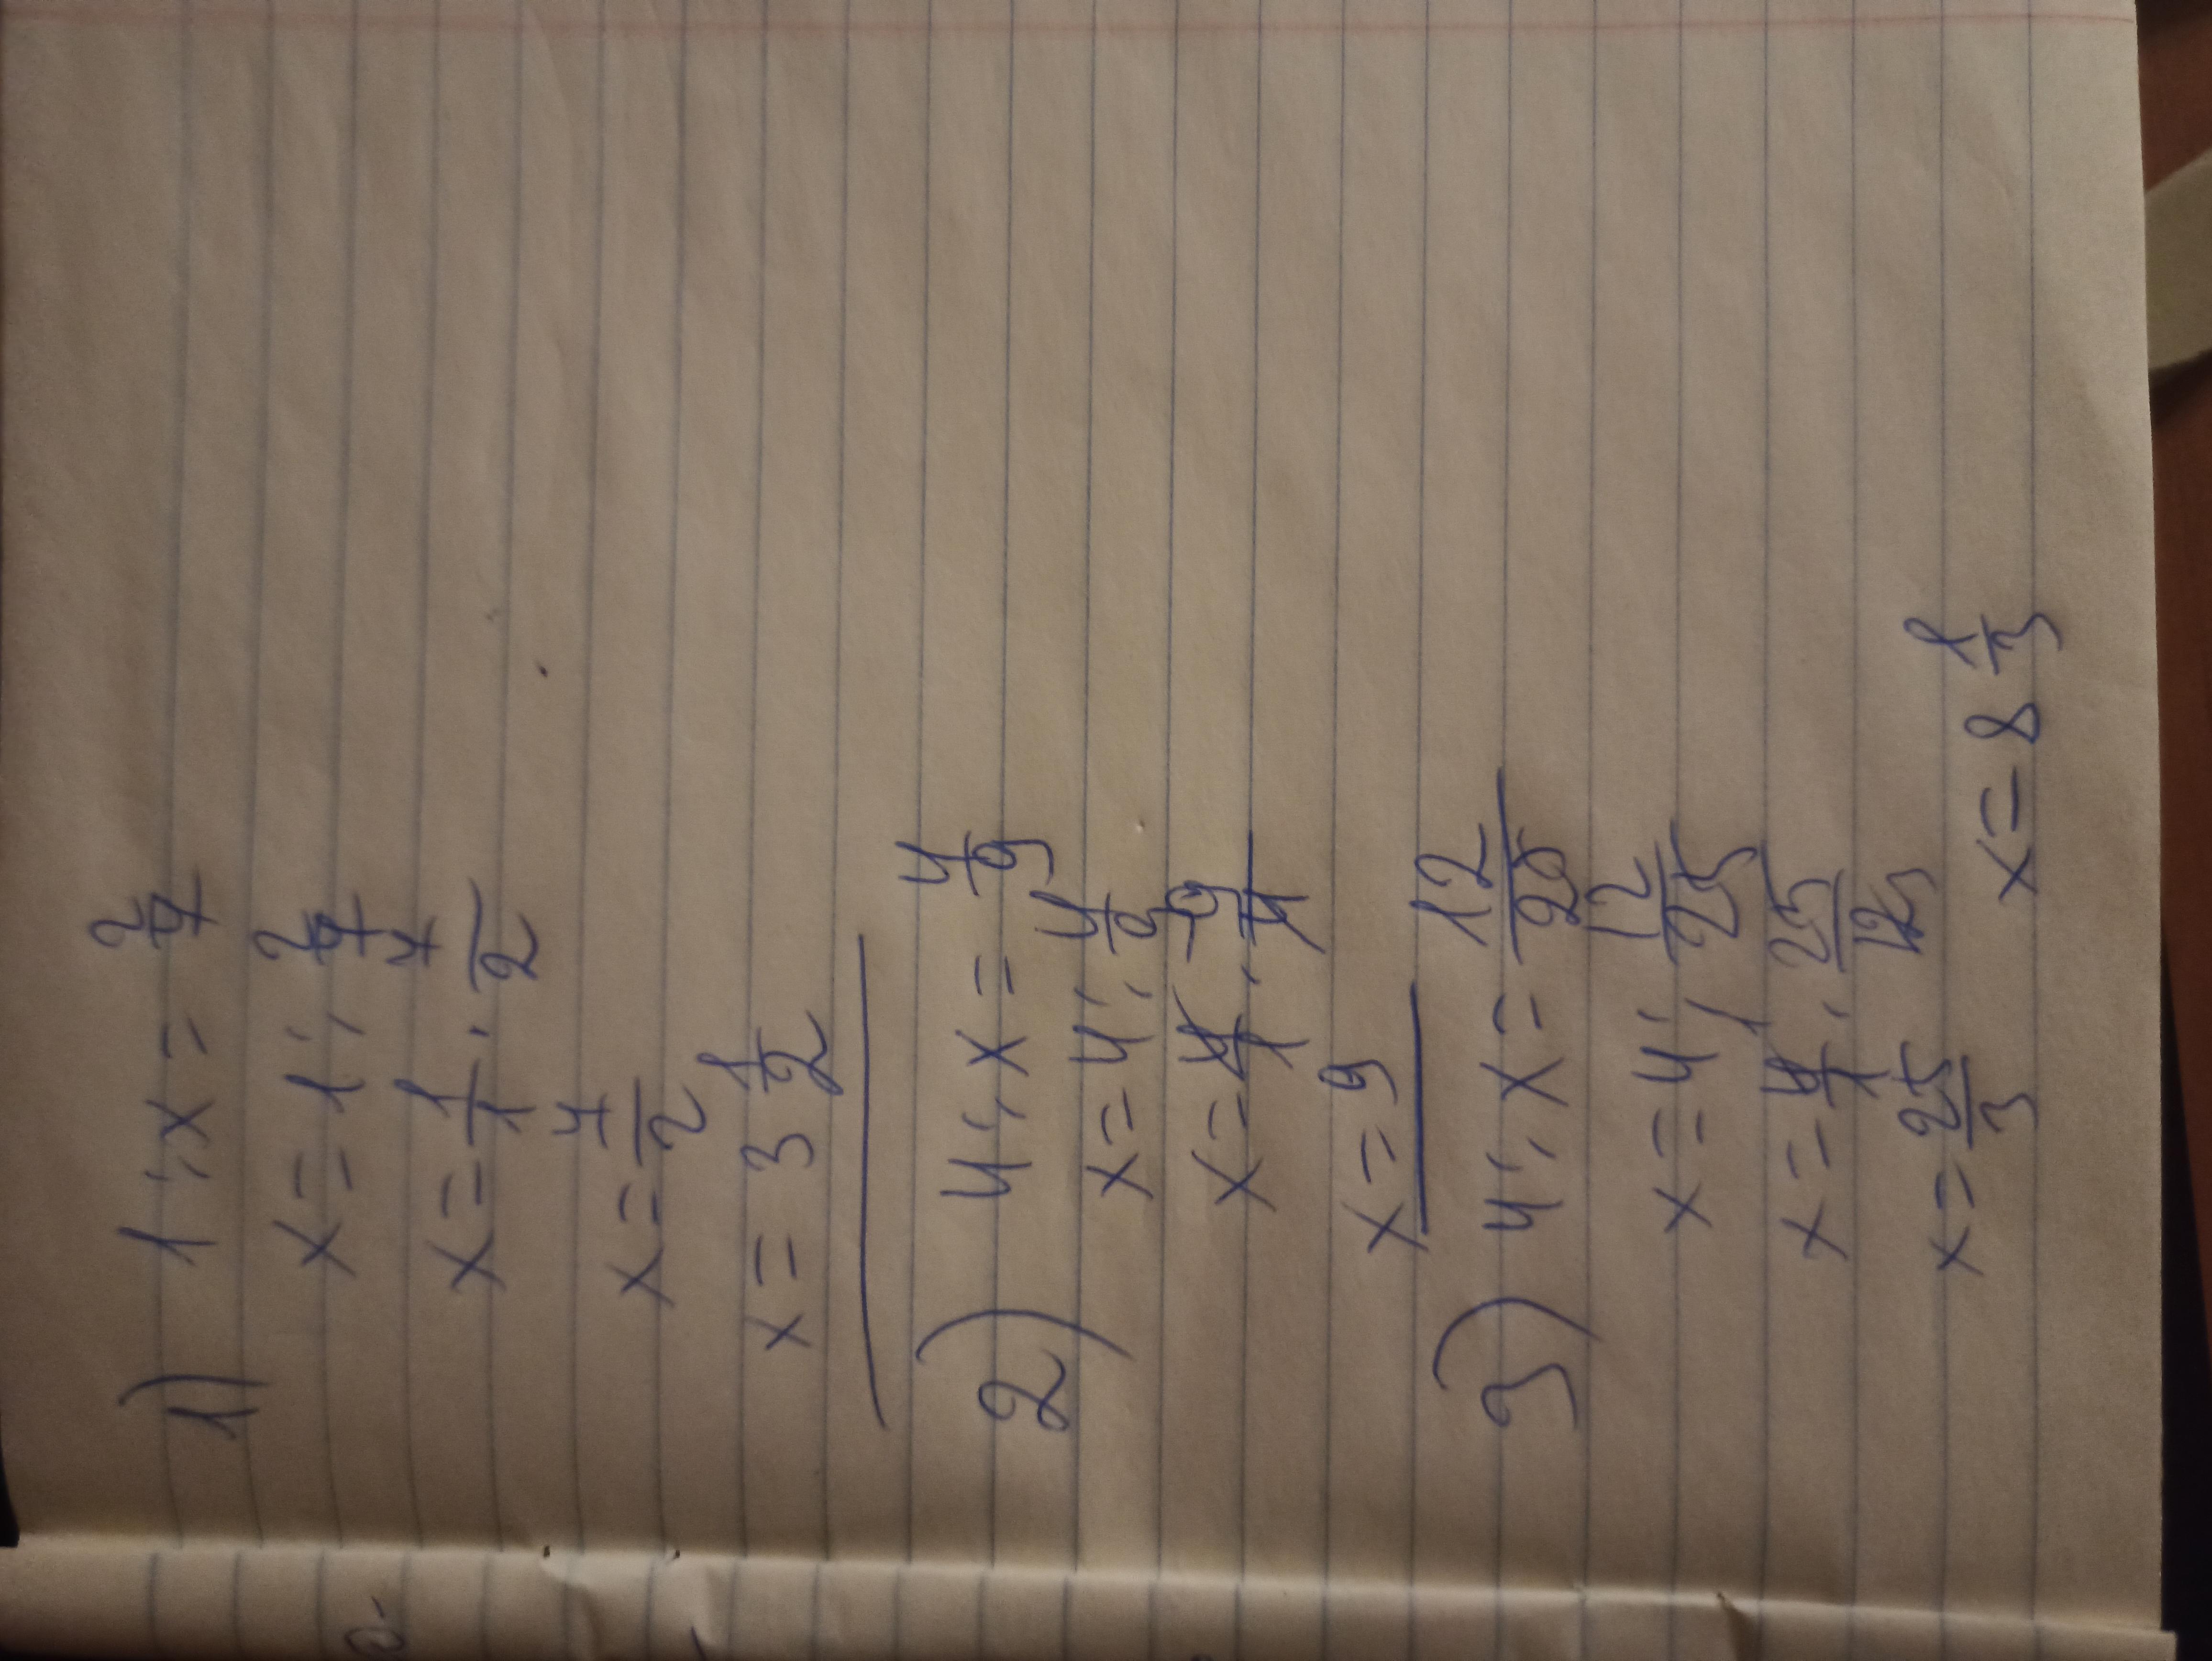 1) 1 : x = 2/7
x = 1 : 2/7
x = 1/1 · 7/2
x = 7/2
x = 3 1/2
2) 4 : x = 4/9
x = 4 : 4/9
x = 4/1 · 9/4
x = 9
3) 4 : x = 12/25
x = 4 : 12/25
x = 4/1 · 25/12 3
x = 25/3 x = 8 1/3